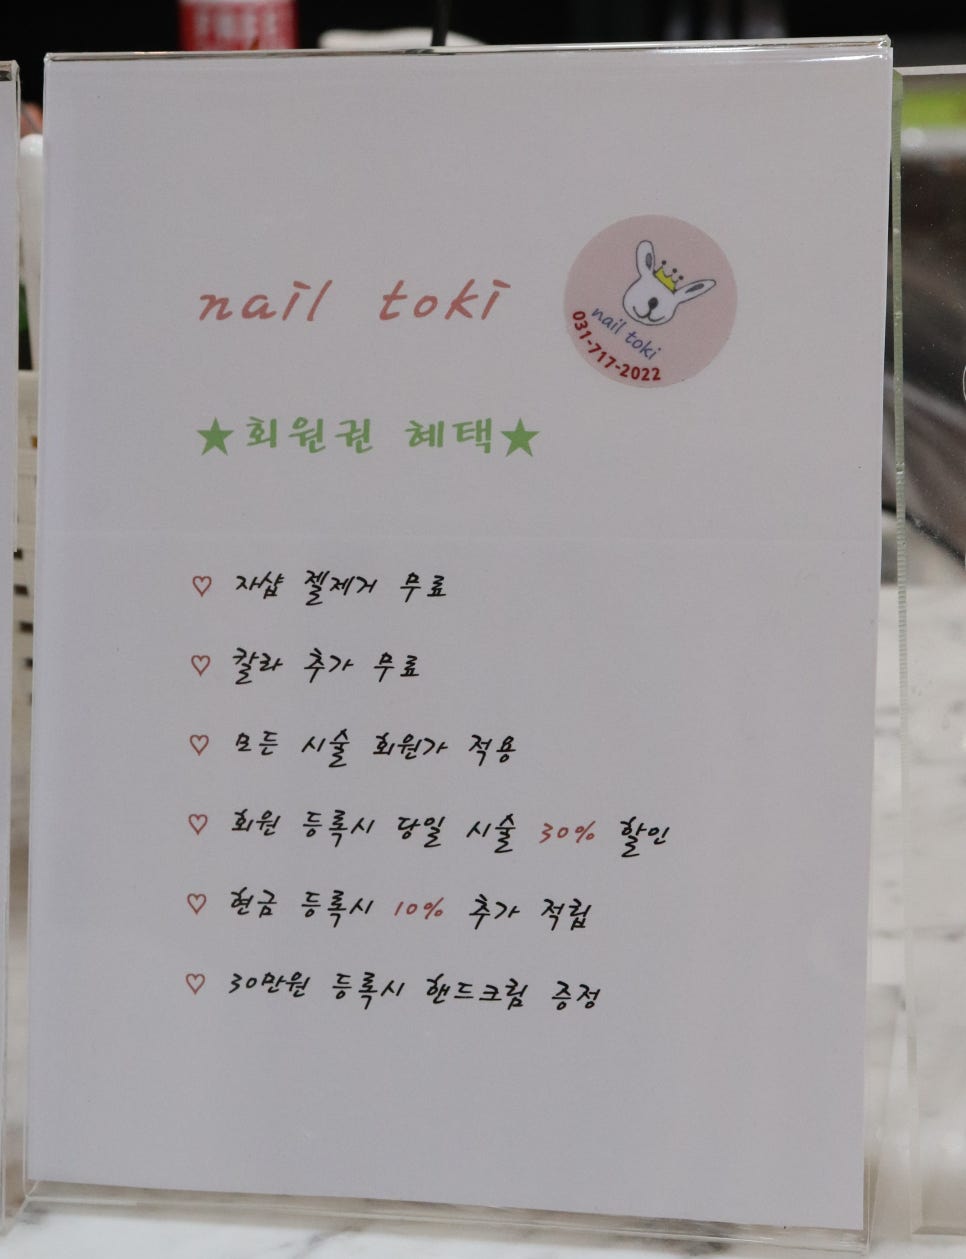 FREE
nail toki
nail toki
031-717-2022
★회원권 혜택★
♡ 자샵 젤제거 무료
♡ 칼라 추가 무료
♡ 모든 시술 회원가 적용
♡ 회원 등록시 당일 시술 30% 할인
♡ 현금 등록시 10% 추가 적립
♡ 30만원 등록시 핸드크림 증정